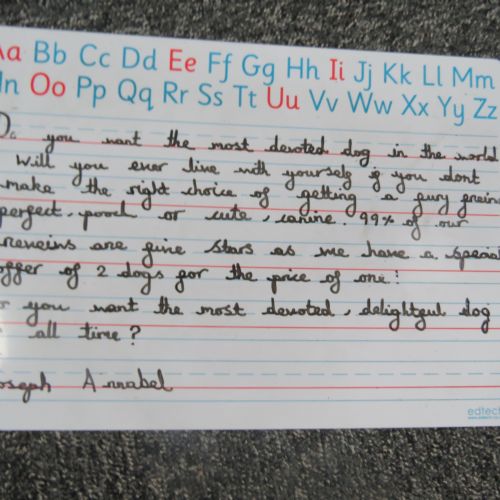 Aa Bb Cc Dd Ee Ff Gg Hh Ii Jj Kk Ll Mm
Nn Oo Pp Qq Rr Ss Tt Uu Vv Ww Xx Yy Zz
Do you want the most devoted dog in the world
Will you ever live with yourself if you dont
make the right choice of getting a fury freind
perfect, pooch or cute, canine. 99% of our
reveiws are five stars as we have a special
offer of 2 dogs for the price of one!
you want the most devoted, delightful dog
all time?
Joseph Annabel
edtech